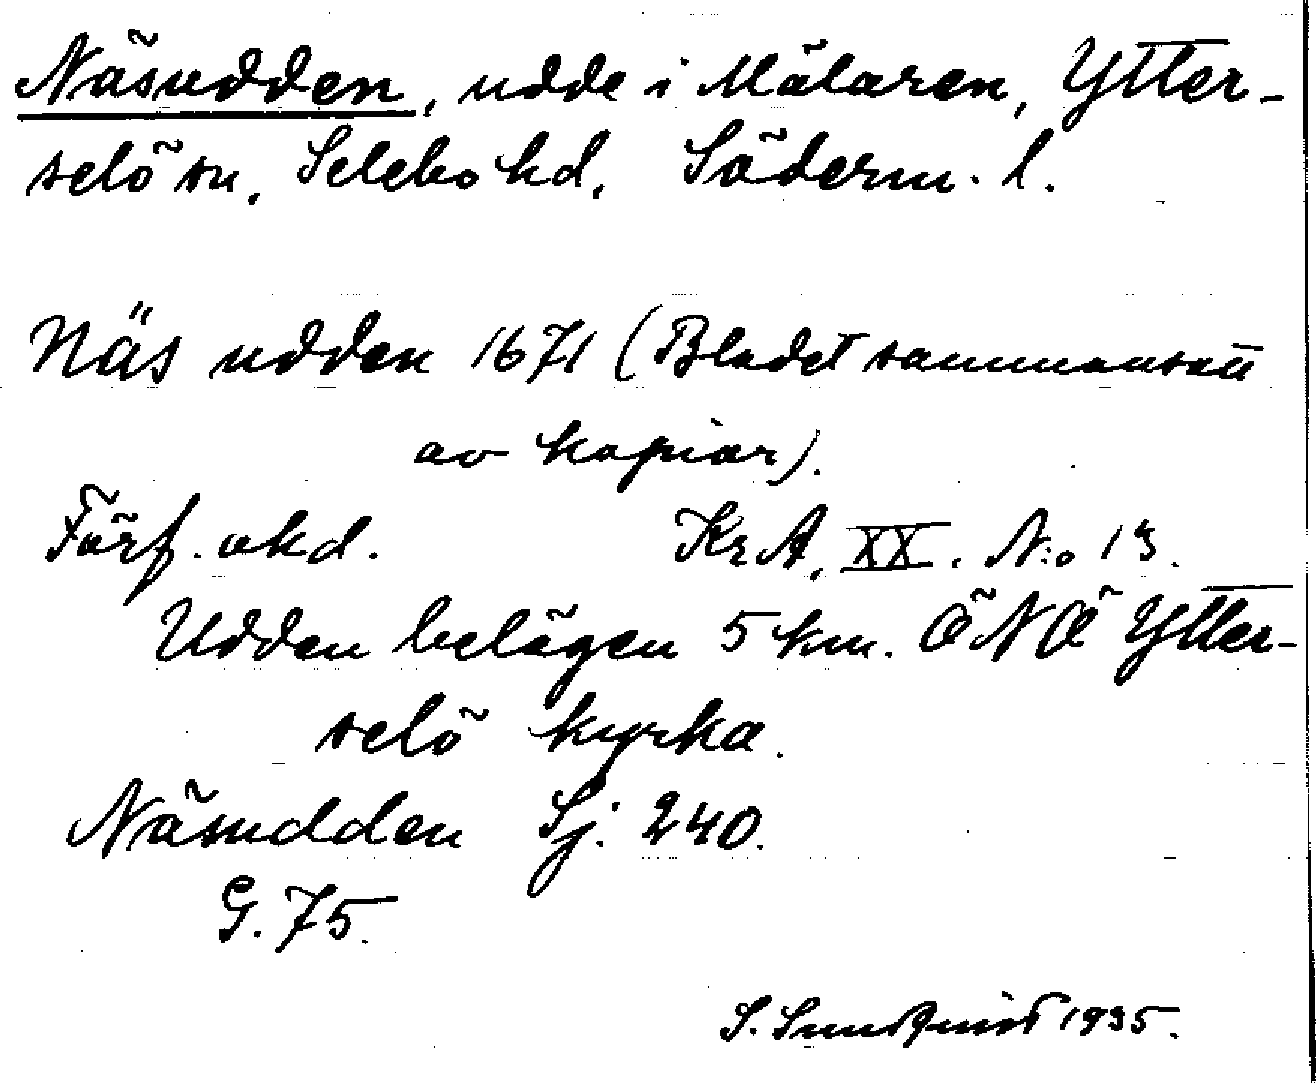 Näsudden, udde i Mälaren, Ytter-
selö sn, Selebo hd, Söderm. l.
Näs udden 1671 (Bladet sammansatt
av kopior).
Förf. okd. KrA, XX. N:o 13.
Udden belägen 5 km. ÖNÖ Ytter-
selö kyrka.
Näsudden Sj. 240.
G. 75.
S. Sundquist 1935.